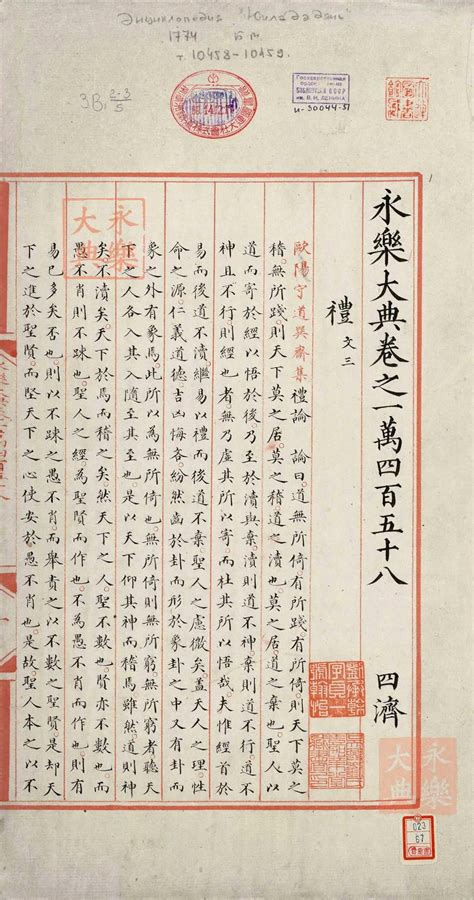 Энциклопедия "Юнлэ Дадянь"
1774
т. 10458-10459.
3В 2-3/5
Государственная
БИБЛИОТЕКА СССР
им. В. И. ЛЕНИНА
И-30044-51
永樂大典卷之一萬四百五十八 四濟
禮 文三
歐陽守道巽齋集禮論 論曰道無所倚有所踐有所倚則天下莫之
稽無所踐則天下莫之居莫之稽道之瀆也莫之居道之棄也聖人以
道而寄於經以悟於後乃至於瀆與棄瀆則道不神棄則道不行道不
神且不行則經也者無乃虛其所以寄而杜其所以悟哉夫惟經首於
易而後道不瀆繼易以禮而後道不棄聖人之慮微矣蓋天人之理性
命之源仁義道德吉凶悔吝紛然齒於卦而形於象卦之中又有卦而
象之外有象焉此所以為無所倚也無所倚則無所窮無所窮者聽天
下之人各入其入隨至其至也是以天下仰其神而稽焉雖然道則神
矣不瀆矣天下於焉而稽之矣然天下之人聖不數也賢亦不數也而
愚不肖則不踈也聖人之經為聖賢而作也不為愚不肖而作也則有
易已多矣否也則以不踈之愚不肖而舉責之以不數之聖賢是却天
下之進於聖賢而堅天下之心使安於愚不肖也是故聖人本之以不
永樂大典
永樂大典
023
67